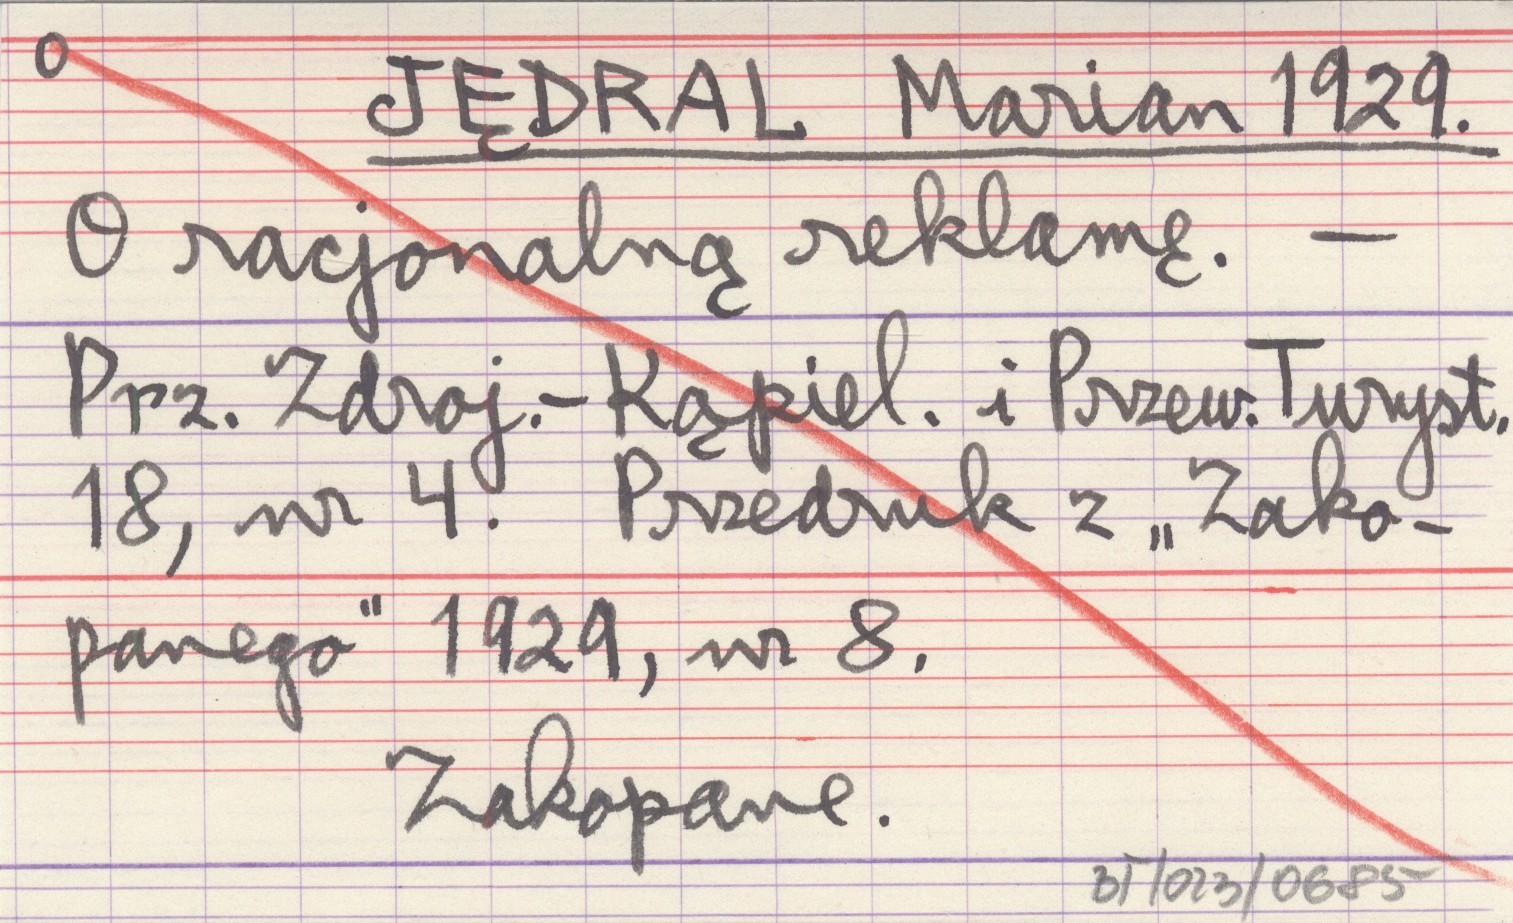 O
JĘDRAL Marian 1929.
O racjonalną reklamę. —
Prz. Zdroj.-Kąpiel. i Przew. Turyst.
18, nr 4. Przedruk z „Zako-
panego" 1929, nr 8.
Zakopane.
BT/023/0685